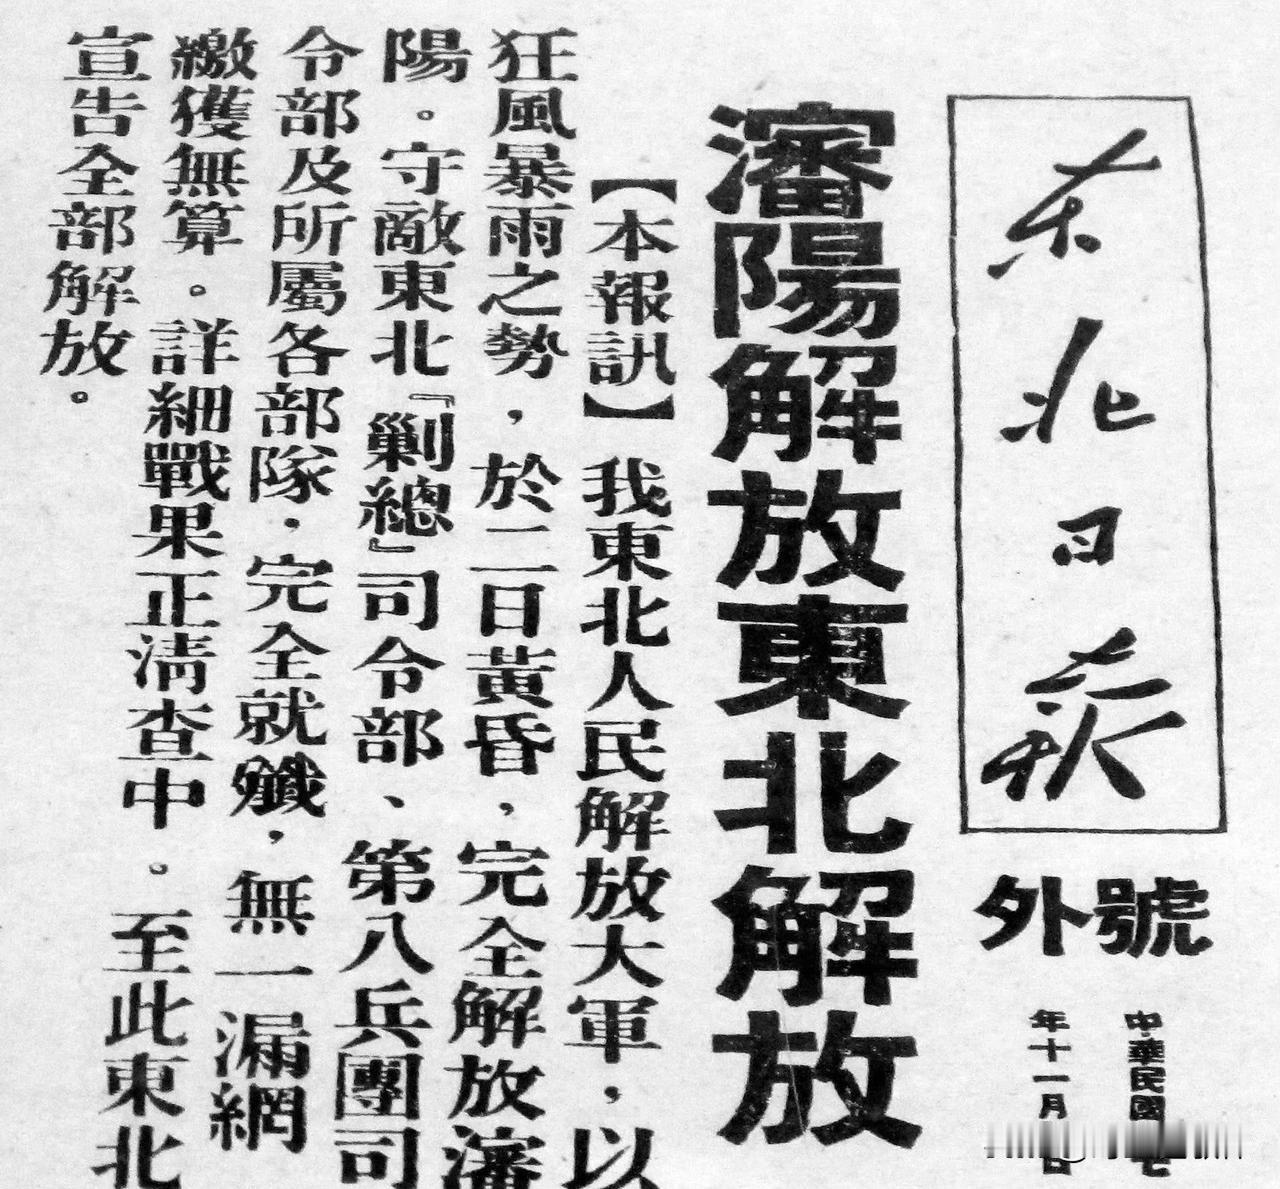 東北日報
號外
中華民國 七
年十一月 日
瀋陽解放東北解放
【本報訊】我東北人民解放大軍，以
狂風暴雨之勢，於二日黃昏，完全解放瀋
陽。守敵東北『剿總』司令部、第八兵團司
令部及所屬各部隊，完全就殲，無一漏網
繳獲無算。詳細戰果正清查中。至此東北
宣告全部解放。